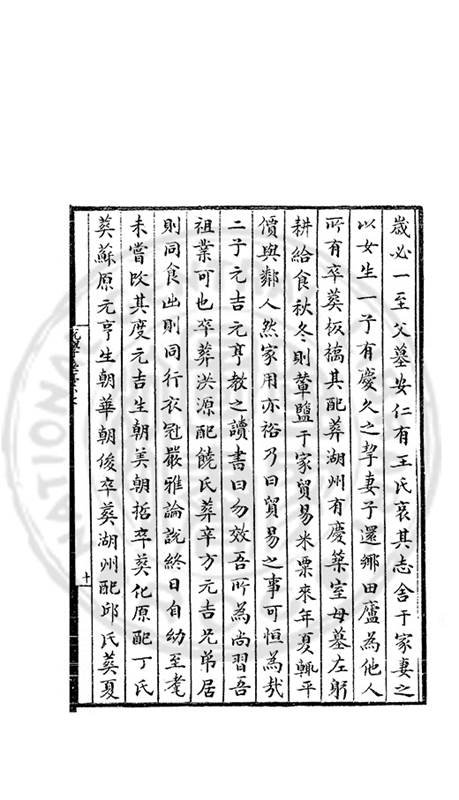 歲必一至父墓安仁有王氏哀其志舍于家妻之
以女生一子有慶久之挈妻子還鄉田廬為他人
所有卒葬板橋其配葬湖州有慶築室母墓左躬
耕給食秋冬則輦鹽于家貿易米粟來年夏輒平
價與鄰人然家用亦裕乃曰貿易之事可恒為哉
二子元吉元亨教之讀書曰勿效吾所為尚習吾
祖業可也卒葬洪源配饒氏葬辛方元吉兄弟居
則同食出則同行衣冠嚴雅論說終日自幼至耄
未嘗改其度元吉生朝美朝哲卒葬化原配丁氏
葬蘇原元亨生朝華朝俊卒葬湖州配邱氏葬夏
十
NATIONAL